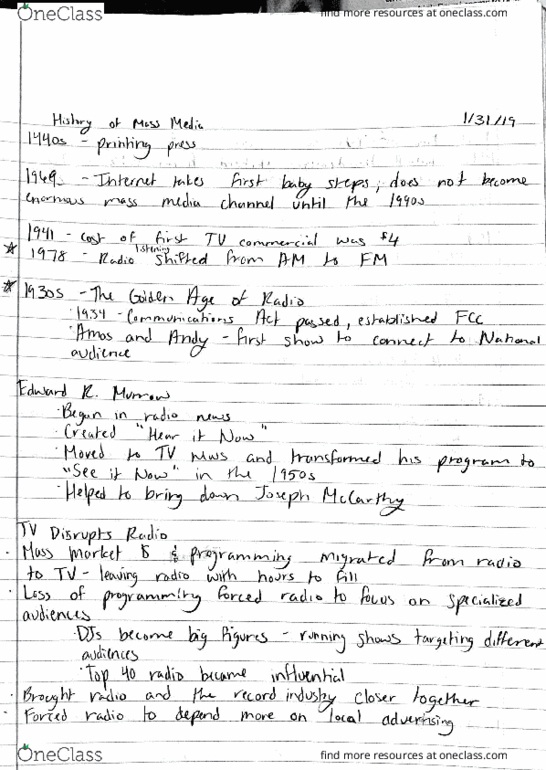 OneClass
find more resources at oneclass.com
History of Mass Media 1/31/19
1440s - printing press
1969 - Internet takes first baby steps; does not become
enormous mass media channel until the 1990s
1941 - cost of first TV commercial was $4
listening
1978 - Radio shifted from AM to FM
1930s - The Golden Age of Radio
· 1934 - Communications Act passed, established FCC
· Amos and Andy - first show to connect to National
audience
Edward R. Murrow
· Began in radio news
· Created "Hear it Now"
· Moved to TV news and transformed his program to
"See it Now" in the 1950s
· Helped to bring down Joseph McCarthy
TV Disrupts Radio
· Mass market $ & programming migrated from radio
to TV - leaving radio with hours to fill
· Loss of programming forced radio to focus on specialized
audiences
· DJs become big figures - running shows targeting different
audiences
· Top 40 radio became influential
· Brought radio and the record industry closer together
· Forced radio to depend more on local advertising
OneClass
find more resources at oneclass.com